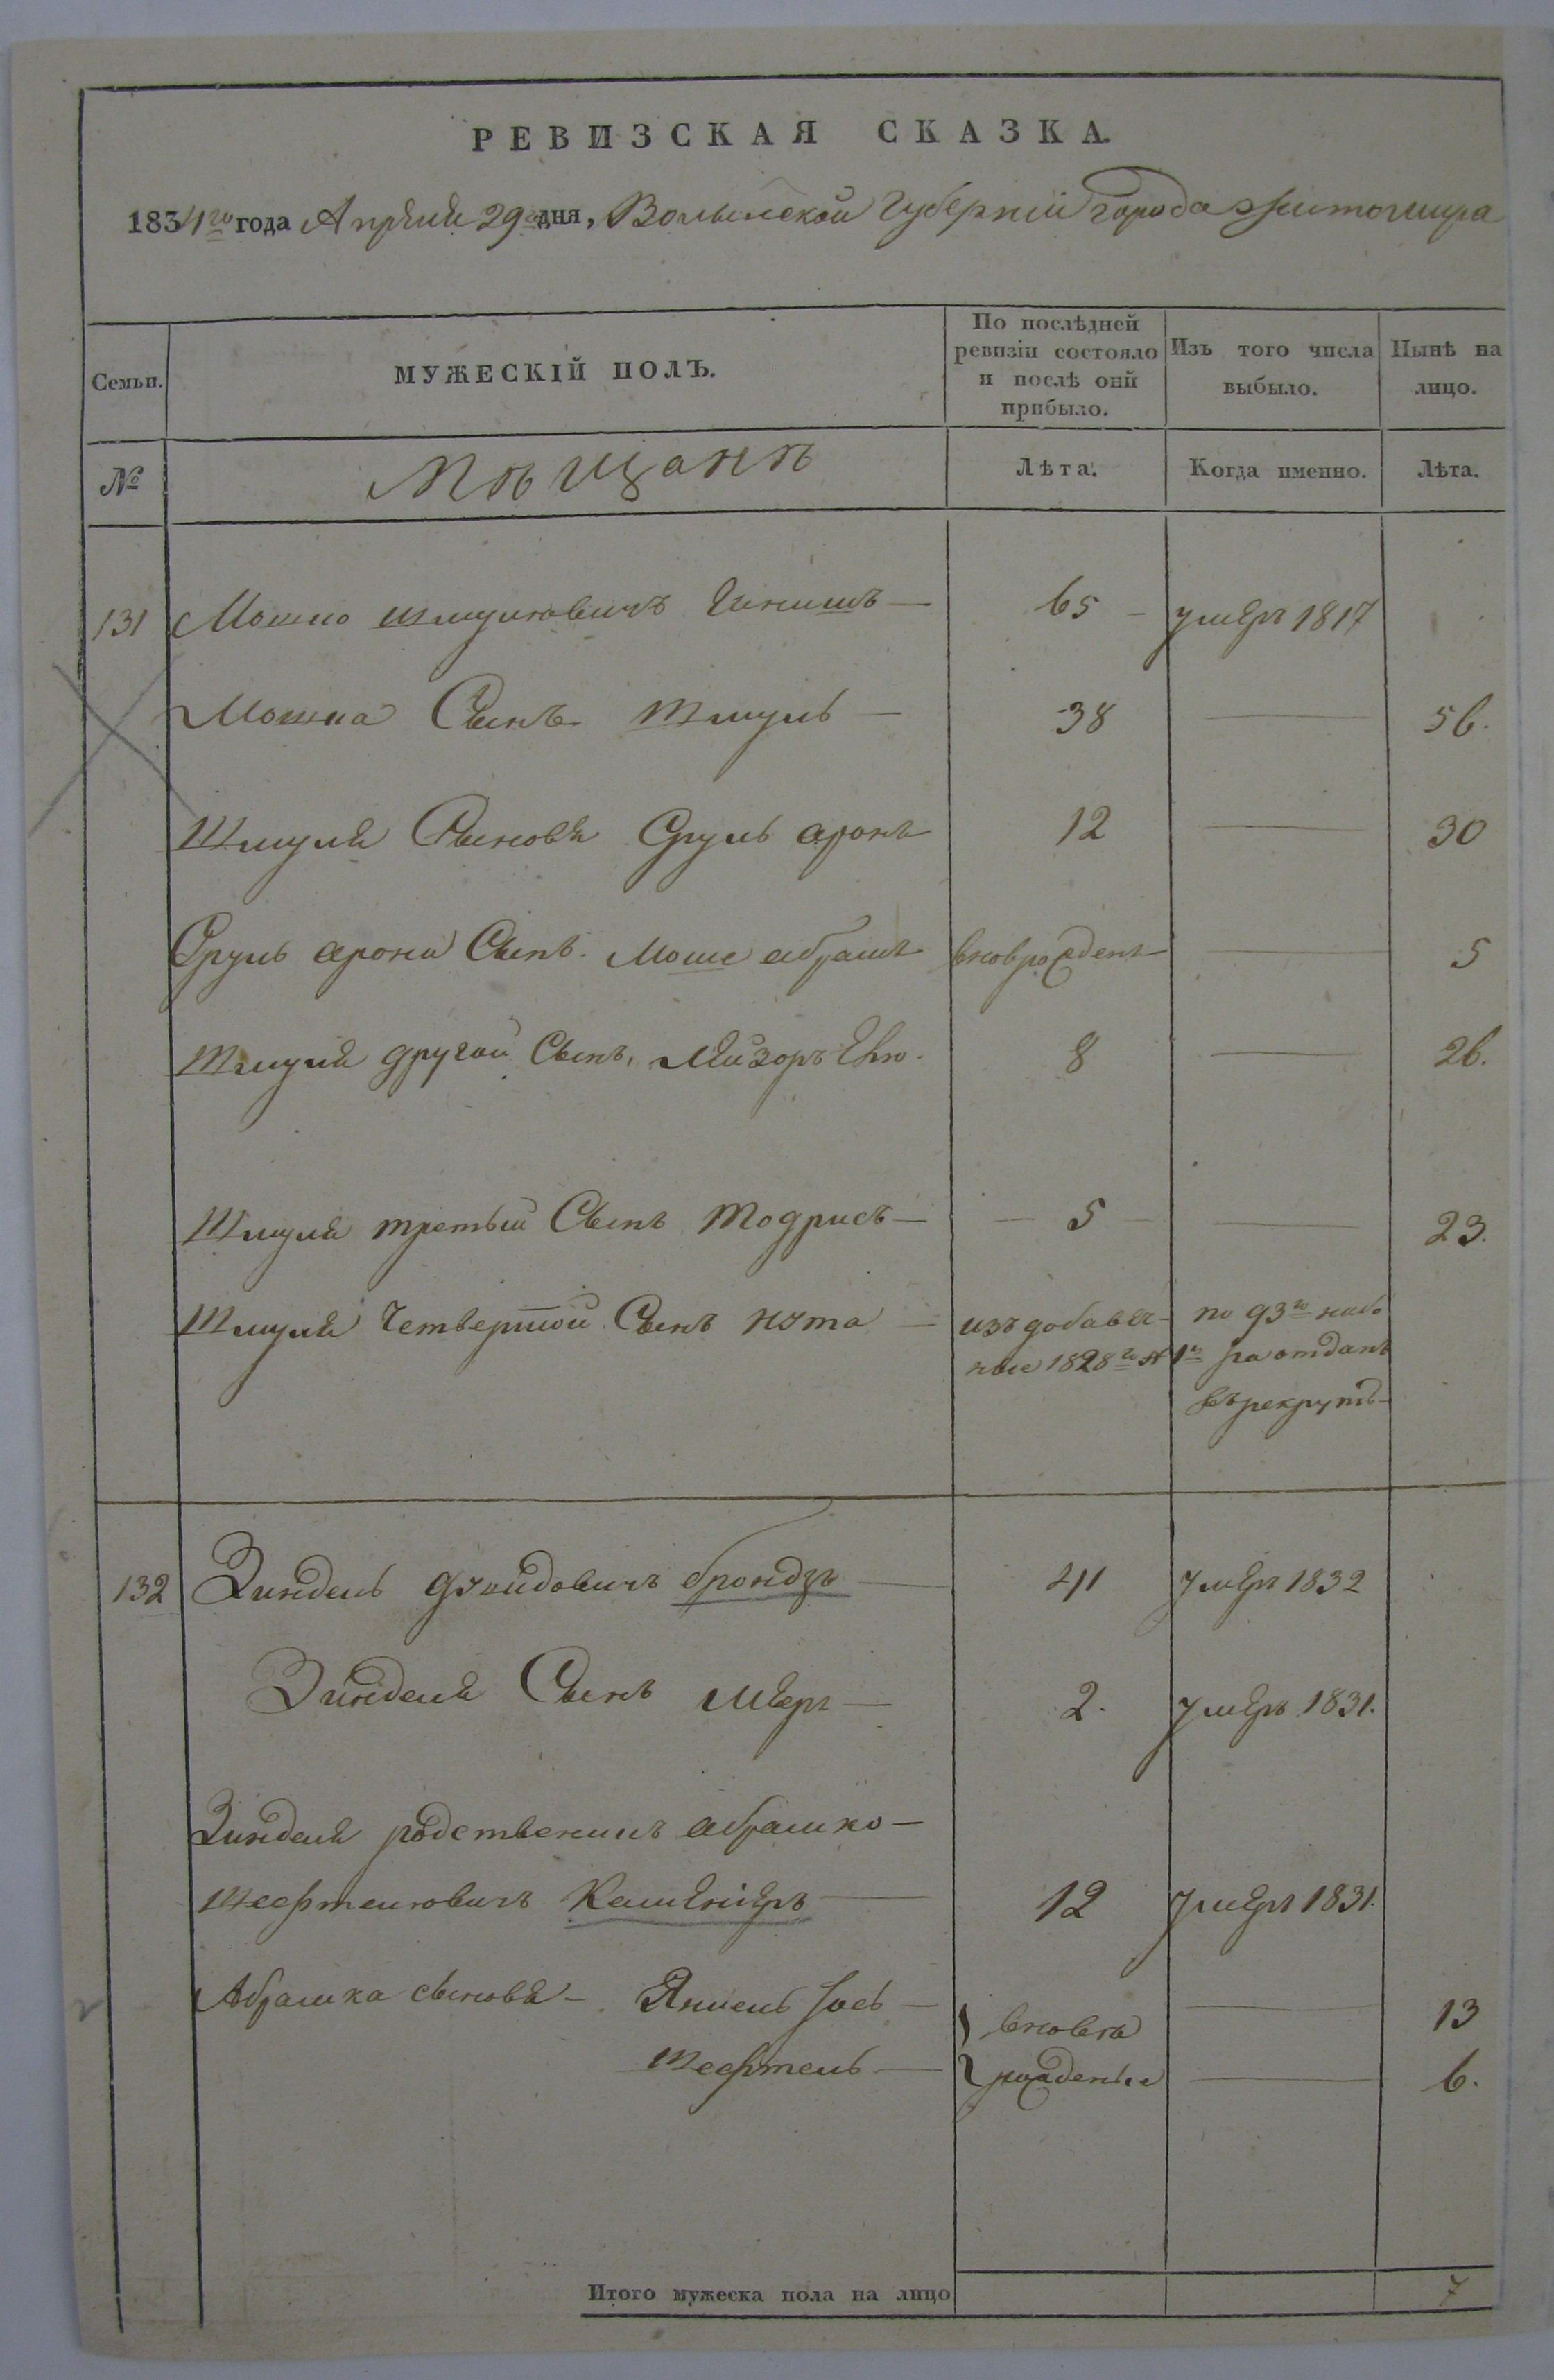 РЕВИЗСКАЯ СКАЗКА.
1834го года Апреля 29го дня, Волынской Губернии города Житомира
Семьи.
МУЖЕСКІЙ ПОЛЪ.
По послѣдней ревизіи состояло и послѣ оній прибыло.
Изъ того числа выбыло.
Нынѣ на лицо.
№
Мѣщанѣ
Лѣта.
Когда именно.
Лѣта.
131 Мошко Шмулювичъ 65 умеръ 1817
Мошка Сынъ Шмуль 38 56.
Шмуля Сыновья Сруль аронъ 12 30
Сруль арона Сынъ. Моше абрамъ вновърожденъ 5
Шмуля другой Сынъ, Лейзоръ 8 26.
Шмуля третый Сынъ Тодрисъ 5 23.
Шмуля Четвертой Сынъ Нута изъ добавоч- по 93го набо
ные 1828го ра отданъ
въ рекруты
132 Зиндель Дувидовичъ брондзъ 41 умеръ 1832
Зинделя Сынъ меер 2. умеръ 1831.
Зинделя родственикъ абрамко
Шефтелювичъ Каменіеръ 12 умеръ 1831.
Абрамка сыновья Янкель Іось вновъ 13
Шефтель рожденые 6.
Итого мужеска пола на лицо 7